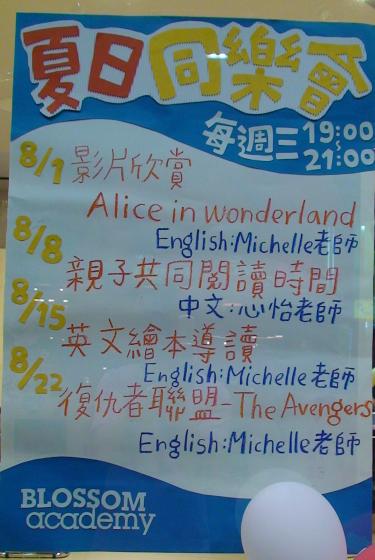 夏日同樂會
每週三 19:00
~
21:00
8/1 影片欣賞
Alice in wonderland
8/8 English:Michelle老師
親子共同閱讀時間
8/15 中文:心怡老師
英文繪本導讀
8/22 English:Michelle老師
復仇者聯盟-The Avengers
English:Michelle老師
BLOSSOM
academy